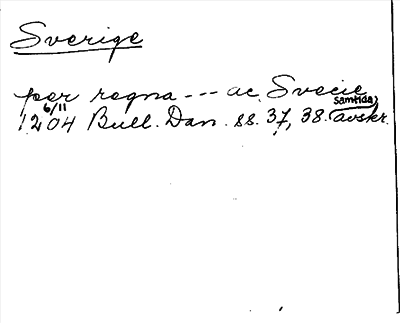 Sverige
per regna --- ac Svecie
1204 6/11 Bull. Dan. ss. 37, 38. samtida avskr.